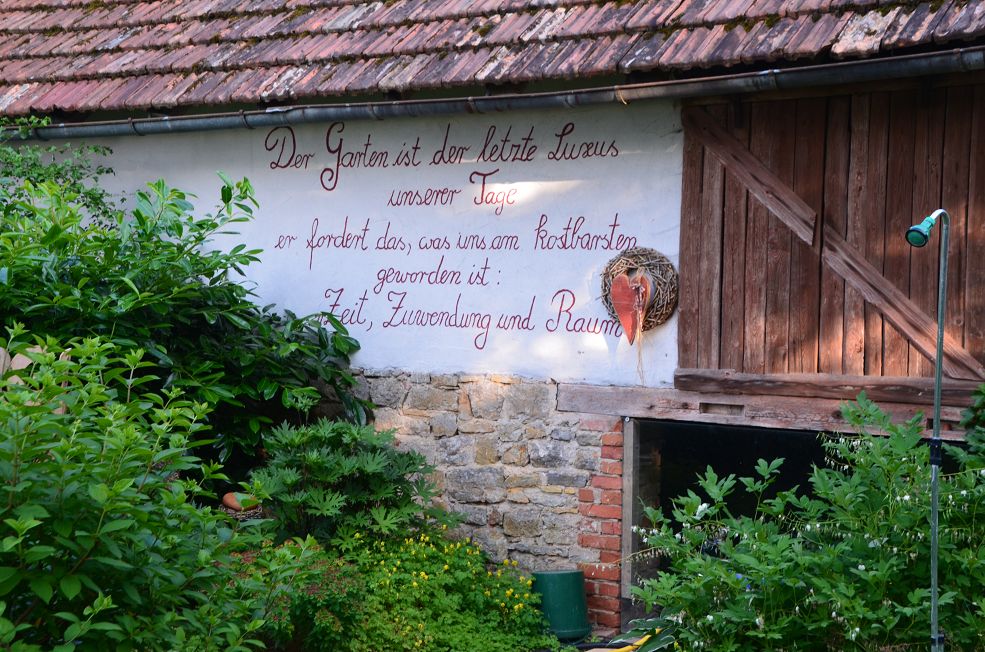 Der Garten ist der letzte Luxus
unserer Tage
er fordert das, was uns am kostbarsten
geworden ist:
Zeit, Zuwendung und Raum